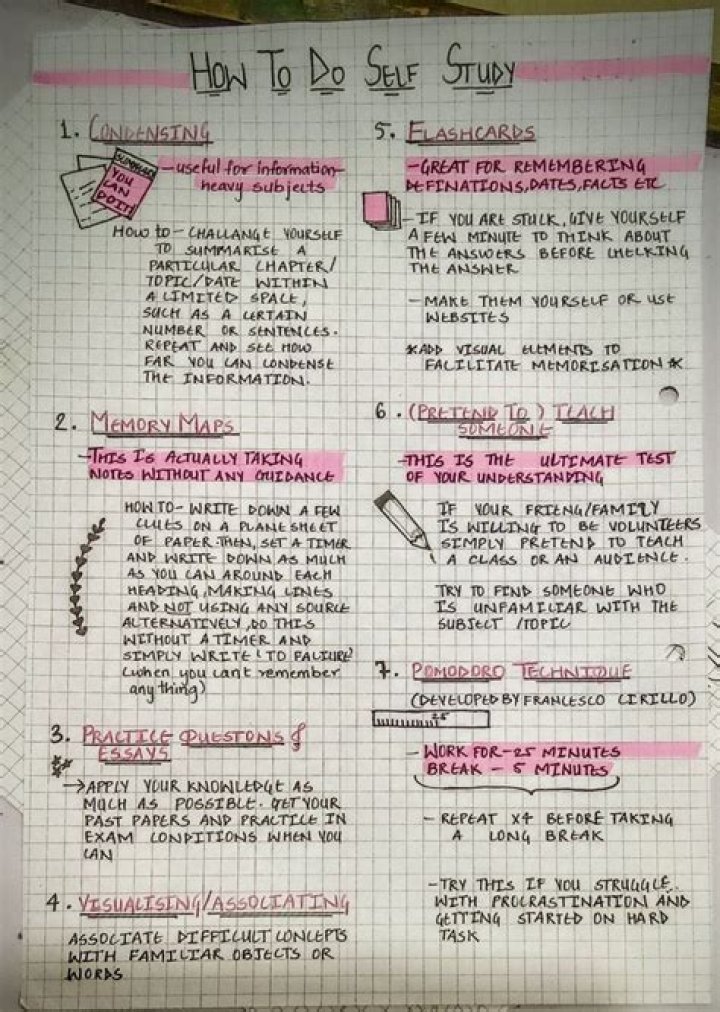 HOW TO DO SELF STUDY
1. CONDENSING
SUMMARY
YOU
CAN
DO IT!
- useful for information-
heavy subjects
HOW to - CHALLANGE YOURSELF
TO SUMMARISE A
PARTICULAR CHAPTER/
TOPIC/DATE WITHIN
A LIMITED SPACE,
SUCH AS A CERTAIN
NUMBER OR SENTENCES.
REPEAT AND SEE HOW
FAR YOU CAN CONDENSE
THE INFORMATION.
2. MEMORY MAPS
- THIS IS ACTUALLY TAKING
NOTES WITHOUT ANY GUIDANCE
HOW TO - WRITE DOWN A FEW
CLUES ON A PLANE SHEET
OF PAPER. THEN, SET A TIMER
AND WRITE DOWN AS MUCH
AS YOU CAN AROUND EACH
HEADING, MAKING LINES
AND NOT USING ANY SOURCE
ALTERNATIVELY, DO THIS
WITHOUT A TIMER AND
SIMPLY WRITE 'TO FALIURE'
(when you cant remember
any thing)
3. PRACTICE QUESTONS &
ESSAYS
→ APPLY YOUR KNOWLEDGE AS
MUCH AS POSSIBLE. GET YOUR
PAST PAPERS AND PRACTICE IN
EXAM CONDITIONS WHEN YOU
CAN
4. VISUALISING/ASSOCIATING
ASSOCIATE DIFFICULT CONCEPTS
WITH FAMILIAR OBJECTS OR
WORDS
5. FLASHCARDS
- GREAT FOR REMEMBERING
DEFINATIONS, DATES, FACTS ETC
- IF YOU ARE STUCK, GIVE YOURSELF
A FEW MINUTE TO THINK ABOUT
THE ANSWERS BEFORE CHECKING
THE ANSWER
- MAKE THEM YOURSELF OR USE
WEBSITES
*ADD VISUAL ELEMENTS TO
FACILITATE MEMORISATION *
6. (PRETEND TO) TEACH
SOMEONE
- THIS IS THE ULTIMATE TEST
OF YOUR UNDERSTANDING
IF YOUR FRIENG/FAMILY
IS WILLING TO BE VOLUNTEERS
SIMPLY PRETEND TO TEACH
A CLASS OR AN AUDIENCE.
TRY TO FIND SOMEONE WHO
IS UNFAMILIAR WITH THE
SUBJECT /TOPIC
7. POMODORO TECHNIQUE
(DEVELOPED BY FRANCESCO CIRILLO)
25
- WORK FOR - 25 MINUTES
BREAK - 5 MINUTES
- REPEAT X4 BEFORE TAKING
A LONG BREAK
- TRY THIS IF YOU STRUGGLE
WITH PROCRASTINATION AND
GETTING STARTED ON HARD
TASK